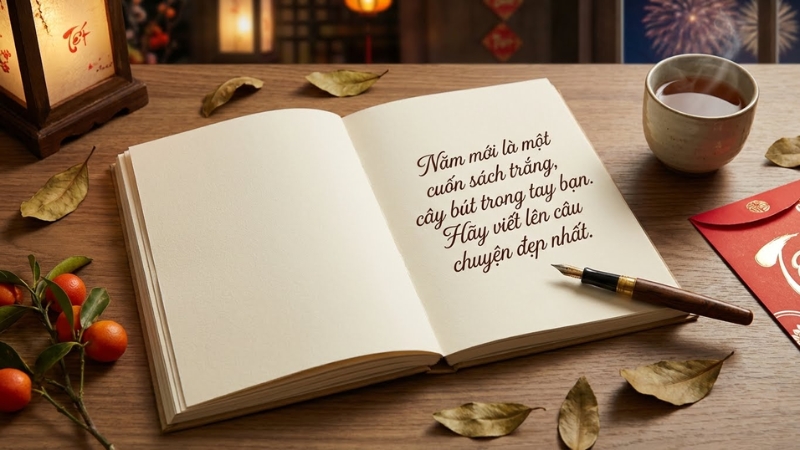 Tết
Năm mới là một
cuốn sách trắng,
cây bút trong tay bạn.
Hãy viết lên câu
chuyện đẹp nhất.